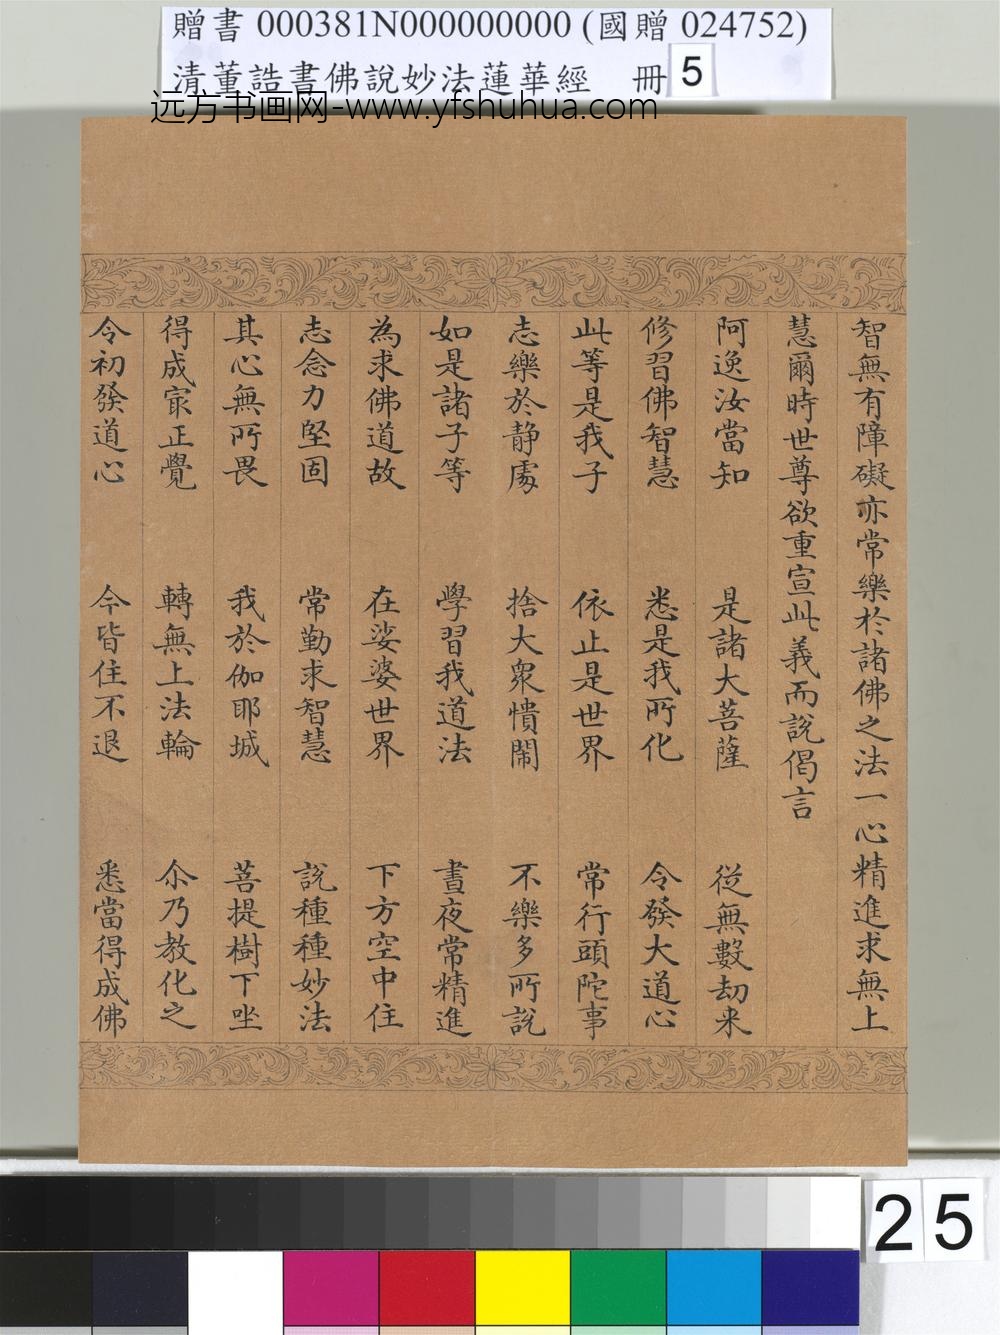 贈書 000381N000000000 (國贈 024752)
清董誥書佛說妙法蓮華經 冊 5
远方书画网-www.yfshuhua.com
智無有障礙亦常樂於諸佛之法一心精進求無上
慧爾時世尊欲重宣此義而說偈言
阿逸汝當知 是諸大菩薩 從無數劫來
修習佛智慧 悉是我所化 令發大道心
此等是我子 依止是世界 常行頭陀事
志樂於静處 捨大眾憒鬧 不樂多所說
如是諸子等 學習我道法 晝夜常精進
為求佛道故 在娑婆世界 下方空中住
志念力堅固 常勤求智慧 說種種妙法
其心無所畏 我於伽耶城 菩提樹下坐
得成㝡正覺 轉無上法輪 尒乃教化之
令初發道心 今皆住不退 悉當得成佛
25